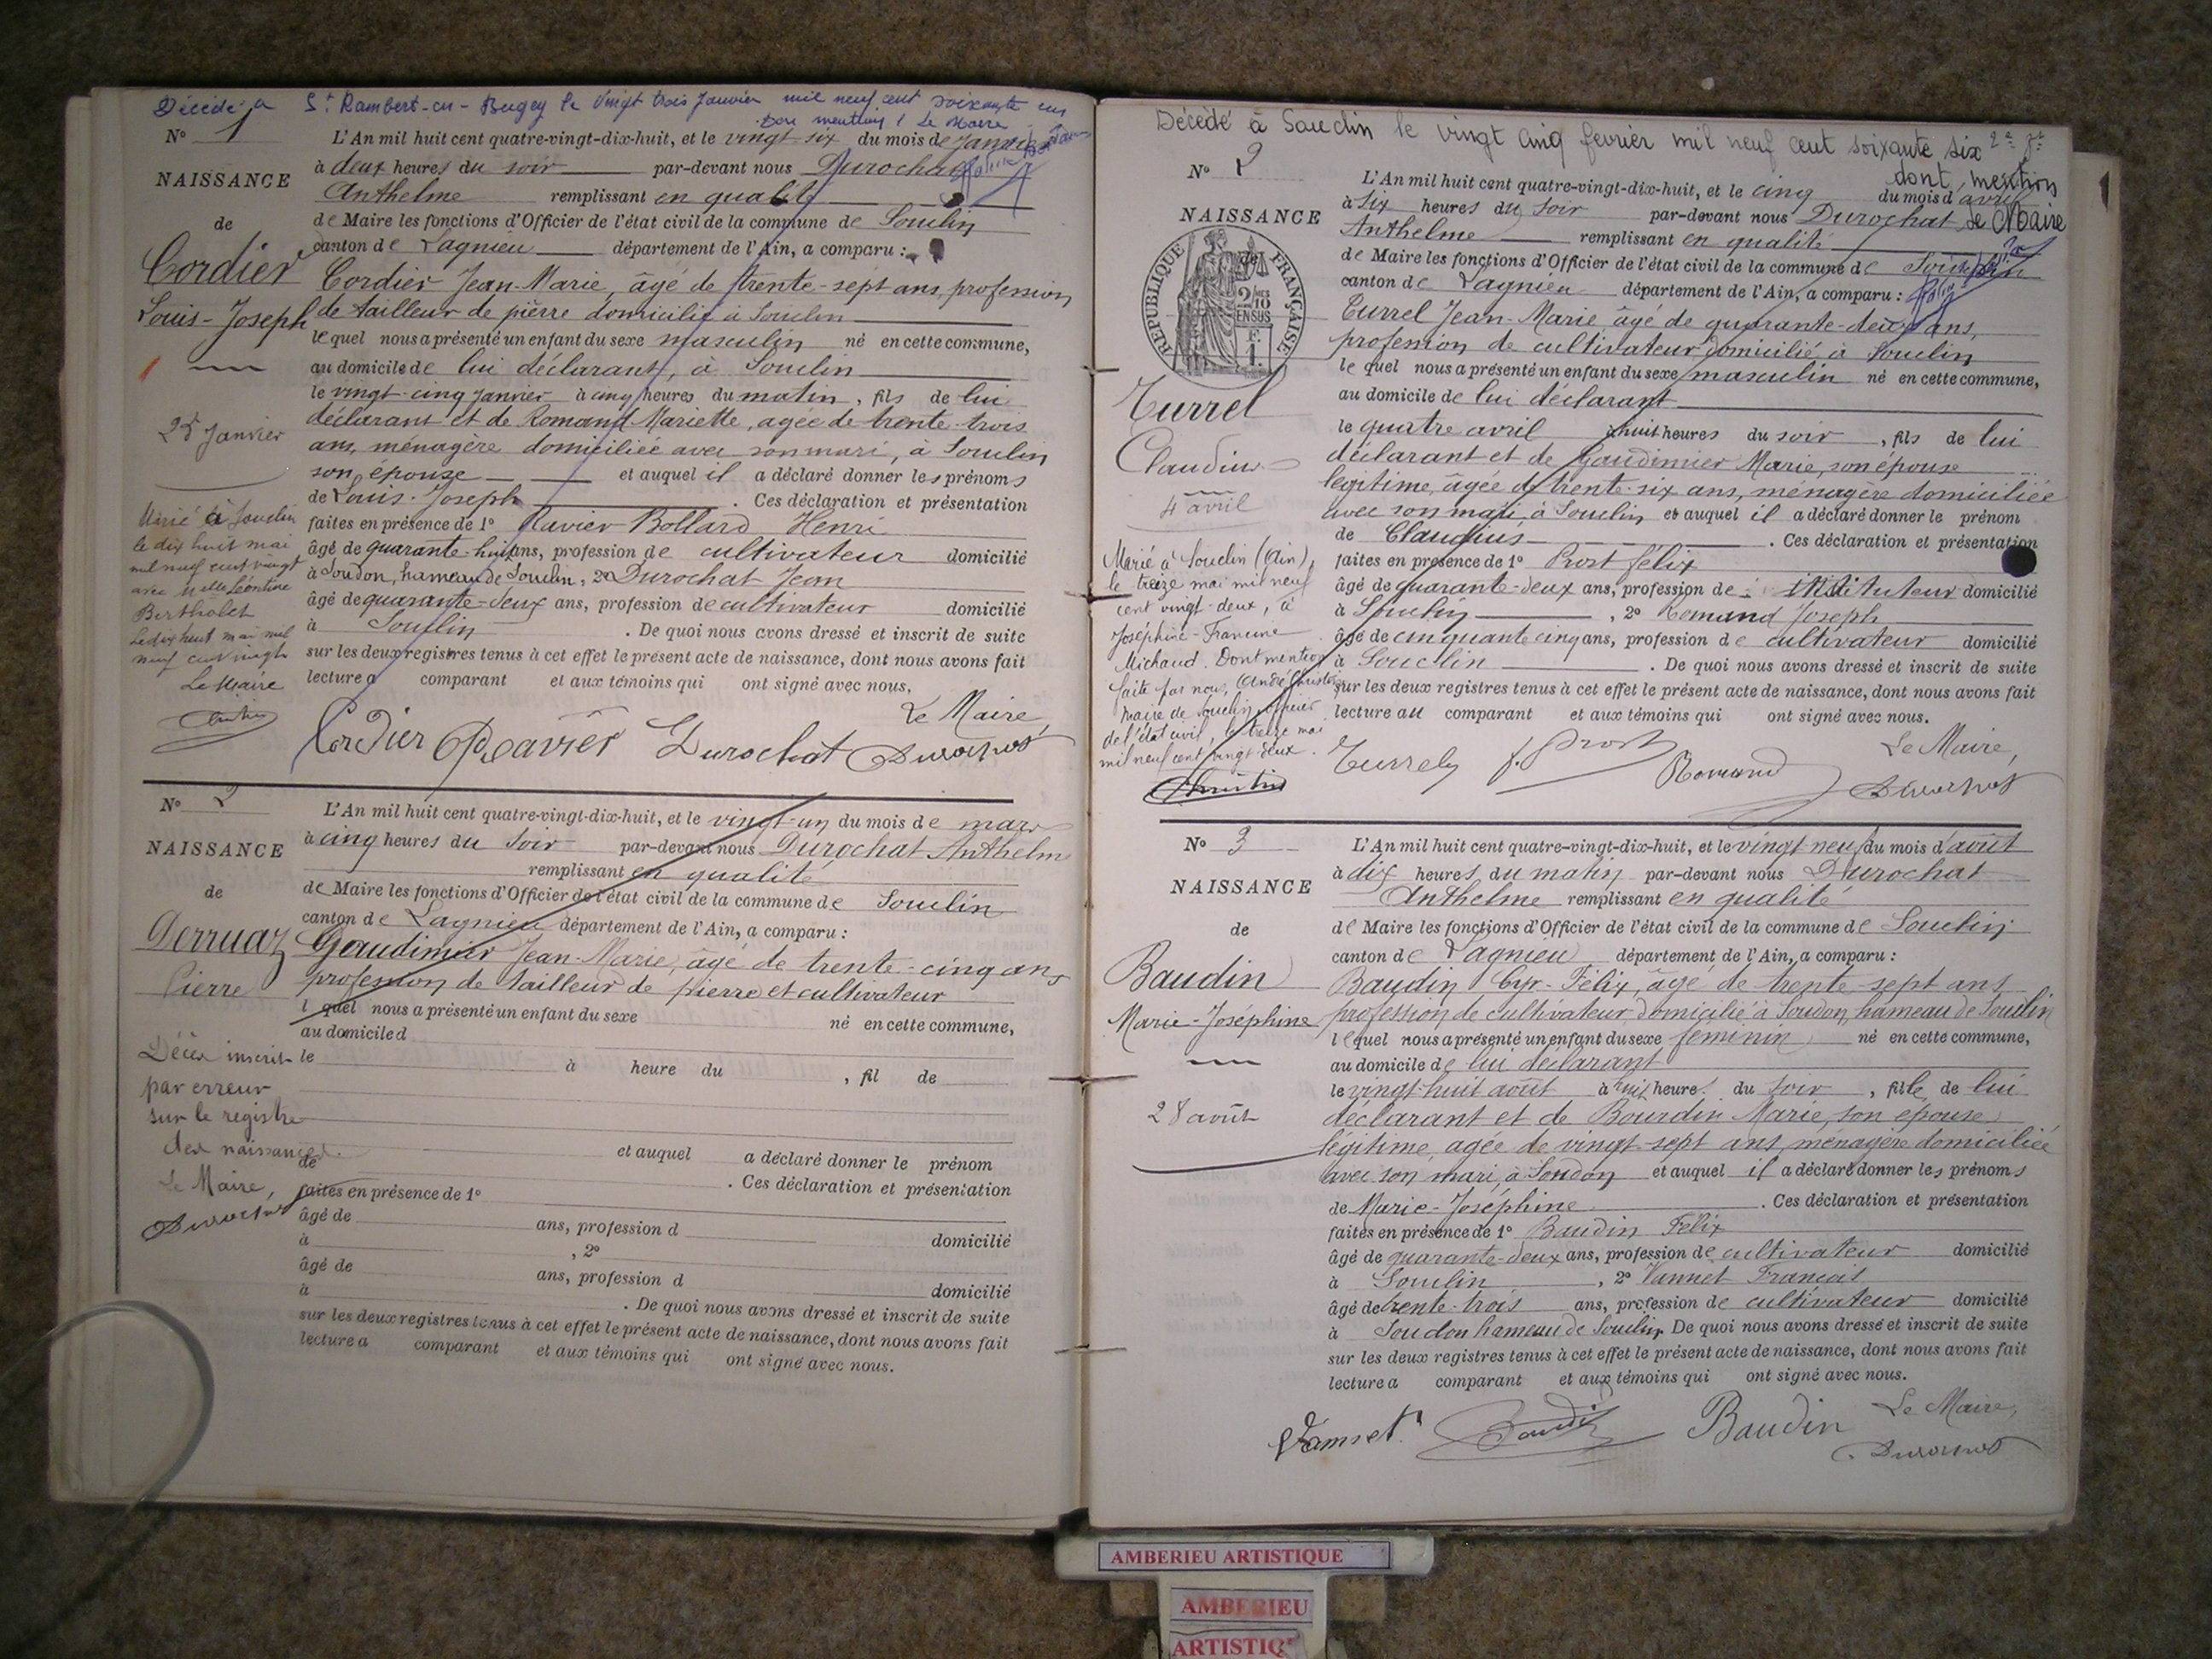 Décédé à St Rambert-en-Bugey le vingt trois Janvier mil neuf cent soixante
Dont mention, Le Maire
No 1
NAISSANCE
de
Cordier
Louis-Joseph
25 Janvier
Marié à Souclin
le dix huit mai
mil neuf cent vingt
avec Melle Léontine
Bertholet
Le dix huit mai mil
neuf cent vingt
Le Maire
L'An mil huit cent quatre-vingt-dix-huit, et le vingt-six du mois de Janvier
à deux heures du soir par-devant nous Durochat
Anthelme remplissant en qualité
de Maire les fonctions d'Officier de l'état civil de la commune de Souclin
canton de Lagnieu département de l'Ain, a comparu :
Cordier Jean-Marie, âgé de trente-sept ans, profession
de tailleur de pierre domicilié à Souclin
lequel nous a présenté un enfant du sexe masculin né en cette commune,
au domicile de lui déclarant, à Souclin
le vingt-cinq Janvier à cinq heures du matin, fils de lui
déclarant et de Romand Mariette, agée de trente-trois
ans, ménagère domiciliée avec son mari, à Souclin
son épouse et auquel il a déclaré donner les prénoms
de Louis-Joseph . Ces déclaration et présentation
faites en présence de 1o Ravier-Bollard Henri
âgé de quarante-huit ans, profession de cultivateur domicilié
à Soudon, hameau de Souclin, 2o Durochat Jean
âgé de quarante-deux ans, profession de cultivateur domicilié
à Souclin . De quoi nous avons dressé et inscrit de suite
sur les deux registres tenus à cet effet le présent acte de naissance, dont nous avons fait
lecture a comparant et aux témoins qui ont signé avec nous.
Le Maire,
Cordier Ravier Durochat Durochat
No 2
NAISSANCE
de
Derruaz
Pierre
Décès inscrit
par erreur
sur le registre
des naissances.
Le Maire,
Durochat
L'An mil huit cent quatre-vingt-dix-huit, et le vingt-un du mois de mars
à cinq heures du soir par-devant nous Durochat Anthelme
remplissant en qualité
de Maire les fonctions d'Officier de l'état civil de la commune de Souclin
canton de Lagnieu département de l'Ain, a comparu :
Gaudimier Jean-Marie, âgé de trente-cinq ans
profession de tailleur de pierre et cultivateur
l quel nous a présenté un enfant du sexe né en cette commune,
au domicile d
le à heure du , fil de
et auquel a déclaré donner le prénom
de . Ces déclaration et présentation
faites en présence de 1o
âgé de ans, profession d domicilié
à , 2o
âgé de ans, profession d domicilié
à . De quoi nous avons dressé et inscrit de suite
sur les deux registres tenus à cet effet le présent acte de naissance, dont nous avons fait
lecture a comparant et aux témoins qui ont signé avec nous.
Décédé à Souclin le vingt cinq fevrier mil neuf cent soixante six
dont mention
Le Maire
No 2
NAISSANCE
de
RÉPUBLIQUE FRANÇAISE
2/10 EN SUS
Turrel
Claudius
4 avril
Marié à Souclin (Ain),
le treize mai mil neuf
cent vingt-deux, à
Joséphine-Francine
Michaud. Dont mention
faite par nous, André Christin
maire de Souclin officier
de l'état civil, le treize mai
mil neuf cent vingt deux.
Christin
L'An mil huit cent quatre-vingt-dix-huit, et le cinq du mois d'avril
à six heures du soir par-devant nous Durochat
Anthelme remplissant en qualité
de Maire les fonctions d'Officier de l'état civil de la commune de Souclin
canton de Lagnieu département de l'Ain, a comparu :
Turrel Jean-Marie âgé de quarante-deux ans,
profession de cultivateur domicilié à Souclin
lequel nous a présenté un enfant du sexe masculin né en cette commune,
au domicile de lui déclarant
le quatre avril à huit heures du soir, fils de lui
déclarant et de Gaudimier Marie, son épouse
légitime, âgée de trente-six ans, ménagère domiciliée
avec son mari, à Souclin et auquel il a déclaré donner le prénom
de Claudius . Ces déclaration et présentation
faites en présence de 1o Prost Félix
âgé de quarante-deux ans, profession de instituteur domicilié
à Souclin , 2o Romand Joseph
âgé de cinquante cinq ans, profession de cultivateur domicilié
à Souclin . De quoi nous avons dressé et inscrit de suite
sur les deux registres tenus à cet effet le présent acte de naissance, dont nous avons fait
lecture au comparant et aux témoins qui ont signé avec nous.
Le Maire,
Turrel f. Prost Romand Durochat
No 3
NAISSANCE
de
Baudin
Marie-Joséphine
28 août
L'An mil huit cent quatre-vingt-dix-huit, et le vingt neuf du mois d'août
à dix heures du matin par-devant nous Durochat
Anthelme remplissant en qualité
de Maire les fonctions d'Officier de l'état civil de la commune de Souclin
canton de Lagnieu département de l'Ain, a comparu :
Baudin Cyr-Félix, âgé de trente-sept ans
profession de cultivateur, domicilié à Soudon, hameau de Souclin
lequel nous a présenté un enfant du sexe féminin né en cette commune,
au domicile de lui déclarant
le vingt-huit août à huit heures du soir, fille de lui
déclarant et de Bourdin Marie, son épouse
légitime, agée de vingt-sept ans, ménagère domiciliée
avec son mari, à Soudon et auquel il a déclaré donner les prénoms
de Marie-Joséphine . Ces déclaration et présentation
faites en présence de 1o Baudin Félix
âgé de quarante-deux ans, profession de cultivateur domicilié
à Souclin , 2o Vannet François
âgé de trente-trois ans, profession de cultivateur domicilié
à Soudon hameau de Souclin De quoi nous avons dressé et inscrit de suite
sur les deux registres tenus à cet effet le présent acte de naissance, dont nous avons fait
lecture a comparant et aux témoins qui ont signé avec nous.
Le Maire,
Vannet Baudin Baudin Durochat
AMBERIEU ARTISTIQUE
AMBERIEU
ARTISTIQ